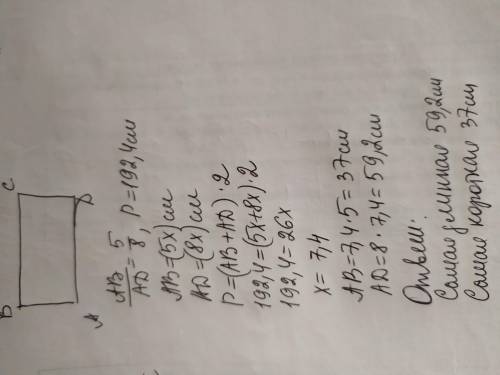 B C
A D
AB/AD = 5/8, P=192,4см
AB=(5x)см
AD=(8x)см
P=(AB+AD)·2
192,4=(5x+8x)·2
192,4=26x
x=7,4
AB=7,4·5=37см
AD=8·7,4=59,2см
Ответ:
Самая длинная 59,2см
Самая короткая 37см